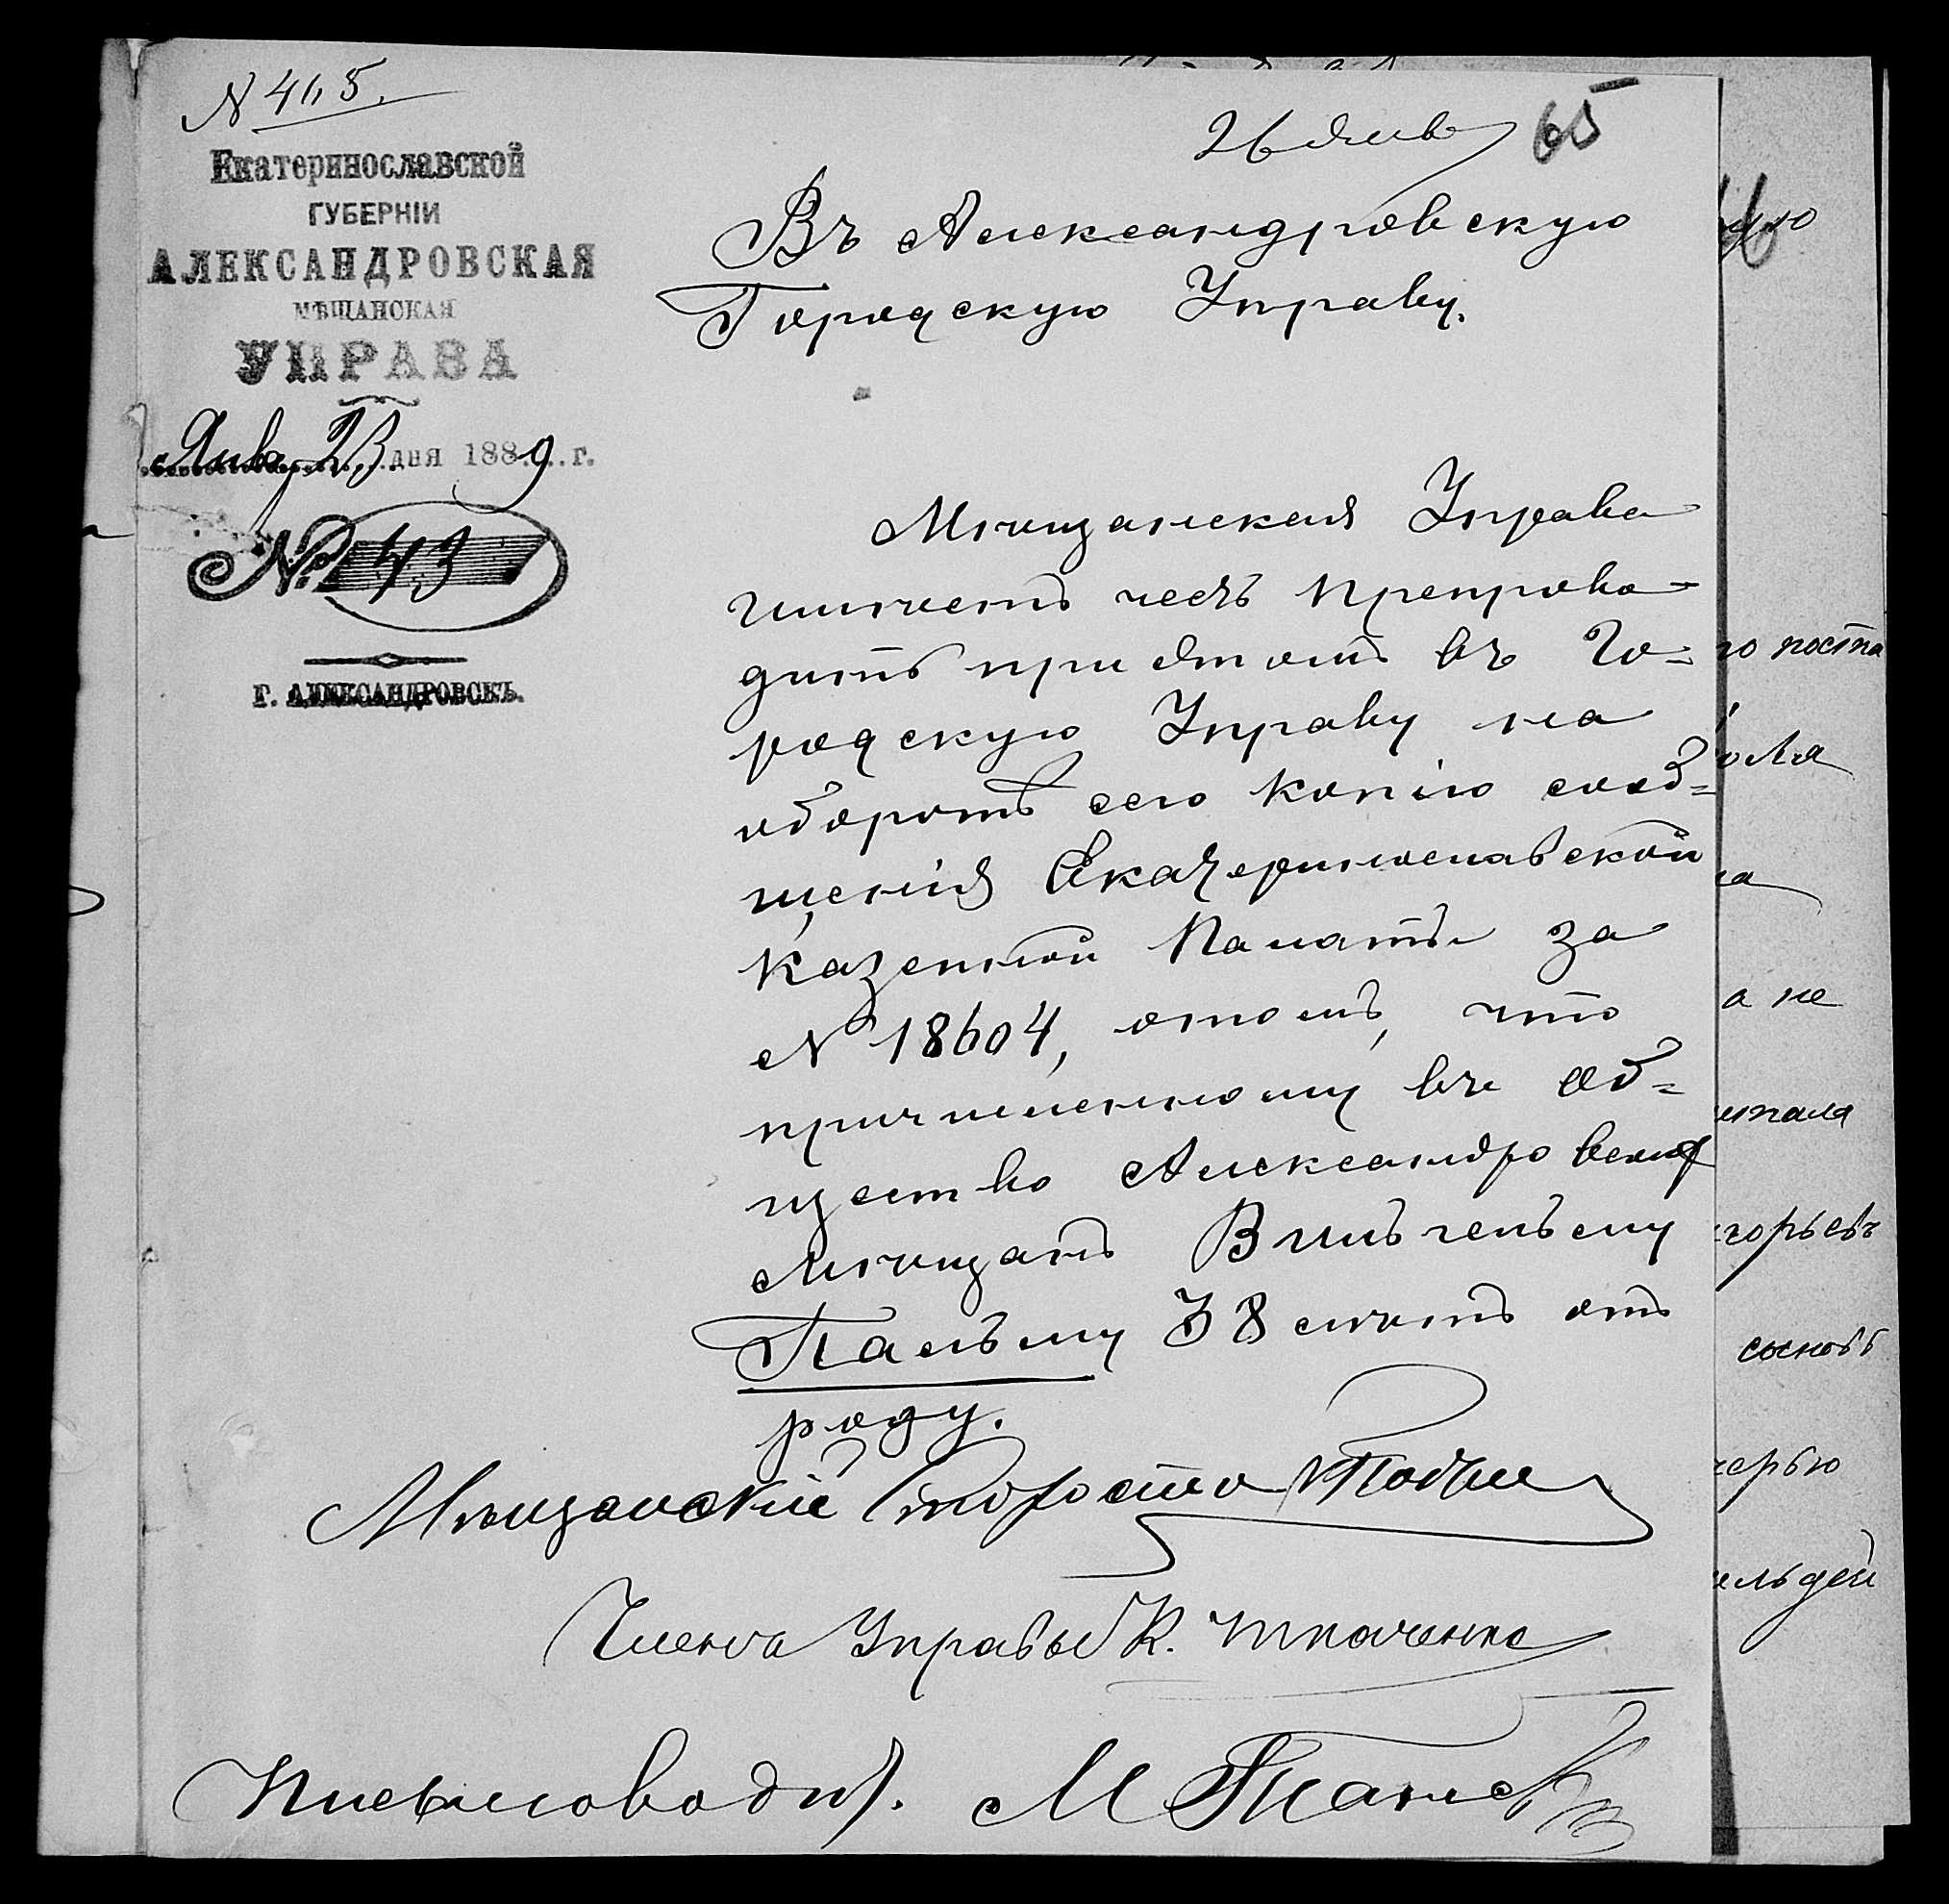 N 465.
26 Янв
65
Екатеринославской
ГУБЕРНІИ
АЛЕКСАНДРОВСКАЯ
МѢЩАНСКАЯ
УПРАВА
Янв. 23 дня 1889 г.
№ 43
г. АЛЕКСАНДРОВСКЪ.
Въ Александровскую
Городскую Управу.
Мѣщанская Управа
имѣетъ честь препрово-
дить при этомъ въ Го-
родскую Управу на
оборотѣ сего копію сооб-
щенія Екатеринославской
Казенной Палаты за
N 18604, отомъ, что
причисленному въ об-
щество Александровскому
мѣщанъ Вильгельму
Пальму 38 лѣтъ отъ
роду.
Мѣщанскій Староста
Члены Управы К. Ткаченко
Письмоводит. М
го поста
а не
горьевъ
сыновъ
черью
ельдей